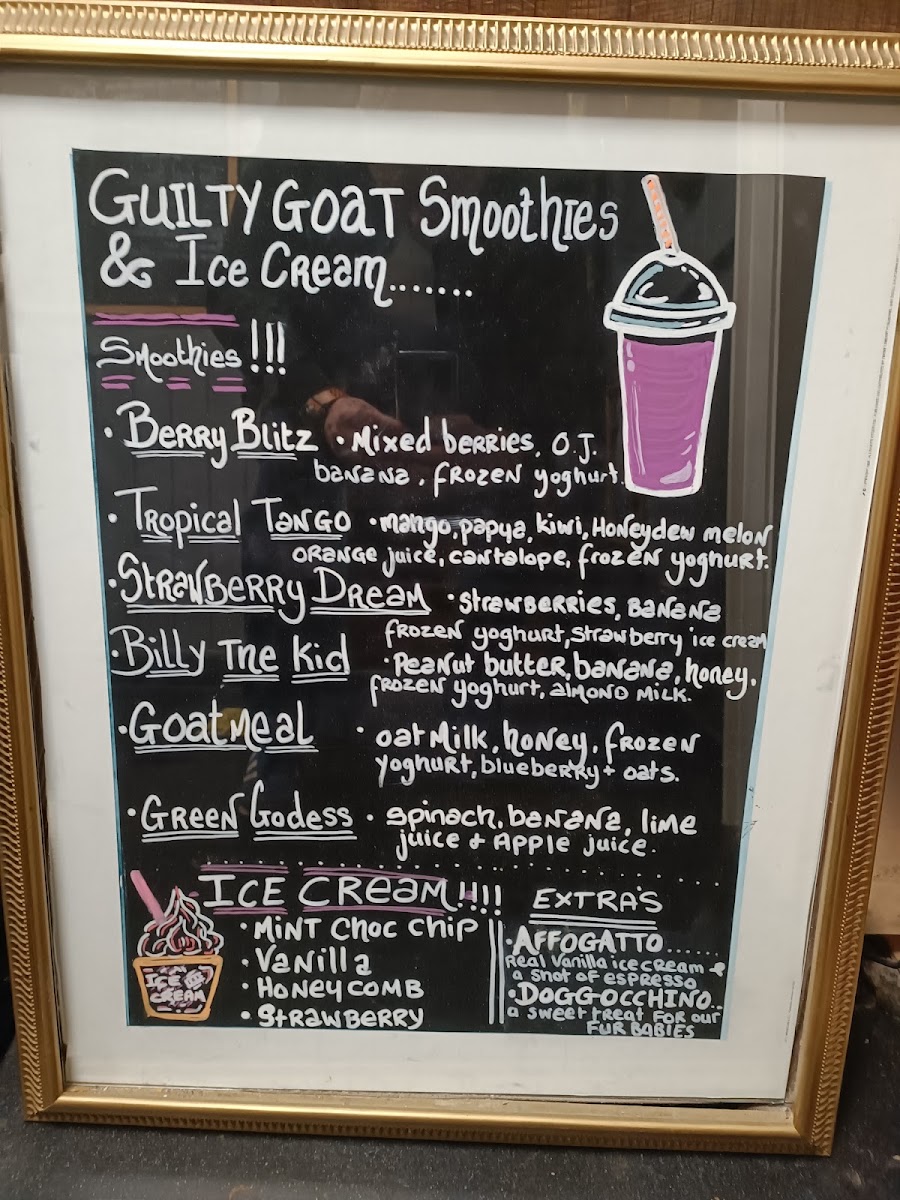 Guilty Goat Smoothies
& Ice Cream.......
Smoothies!!!
• Berry Blitz • Mixed berries, O.J.
banana, frozen yoghurt.
• Tropical Tango • mango, papya, kiwi, Honeydew melon
orange juice, cantalope, frozen yoghurt.
• Strawberry Dream • strawberries, banana
frozen yoghurt, strawberry ice cream
• Billy The Kid • Peanut butter, banana, honey.
frozen yoghurt, almond milk.
• Goatmeal • oat Milk, honey, frozen
yoghurt, blueberry + oats.
• Green Godess • spinach, banana, lime
juice & Apple juice.
Ice Cream!!!!
• Mint Choc Chip
• Vanilla
• Honeycomb
• Strawberry
ICE
CREAM
Extra's
• Affogatto......
Real Vanilla ice cream &
a shot of espresso
• Doggocchino..
a sweet treat for our
fur babies